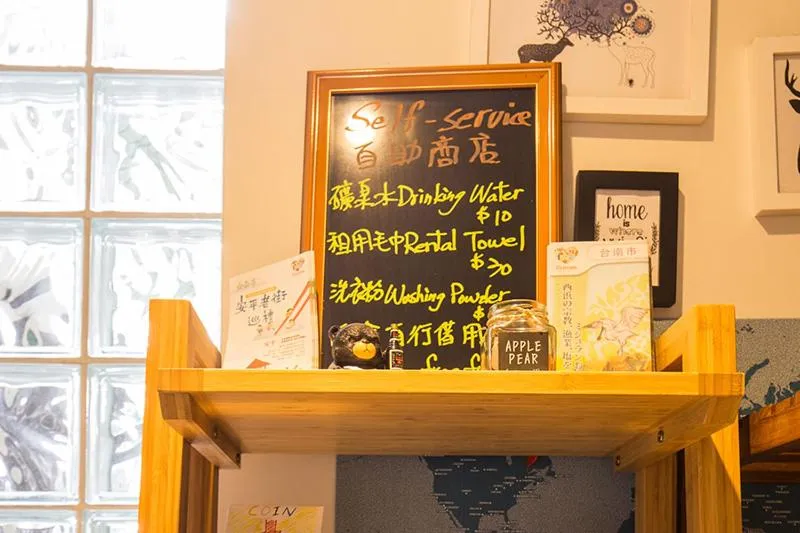 Self-service
自助商店
礦泉水 Drinking Water
$10
租用毛巾 Rental Towel
$20
洗衣粉 Washing Powder
$
自行借用
home
is
where
台南市
安平老街
巡禮
APPLE
PEAR
台南市
西浜の宗教、漁業、塩を
COIN